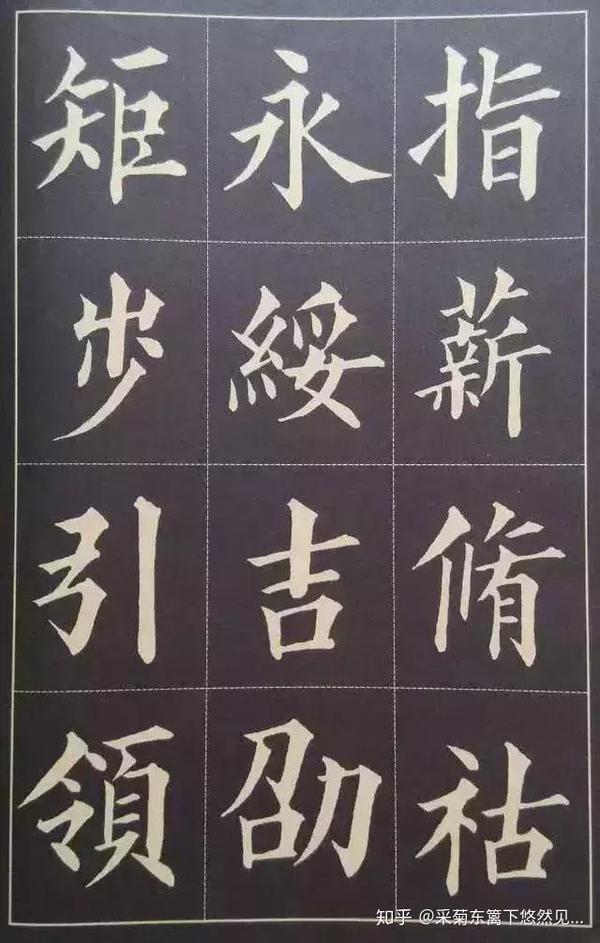 指薪脩祜
永綏吉劭
矩步引領
知乎 @采菊东篱下悠然见...